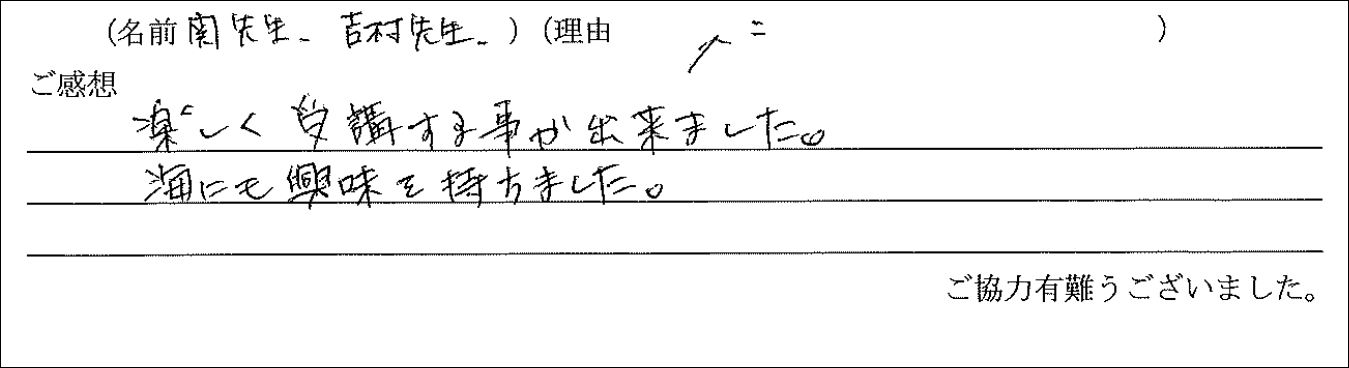 (名前 関先生、吉村先生、) (理由 )
ご感想
楽しく受講する事が出来ました。
海にも興味を持ちました。
ご協力有難うございました。